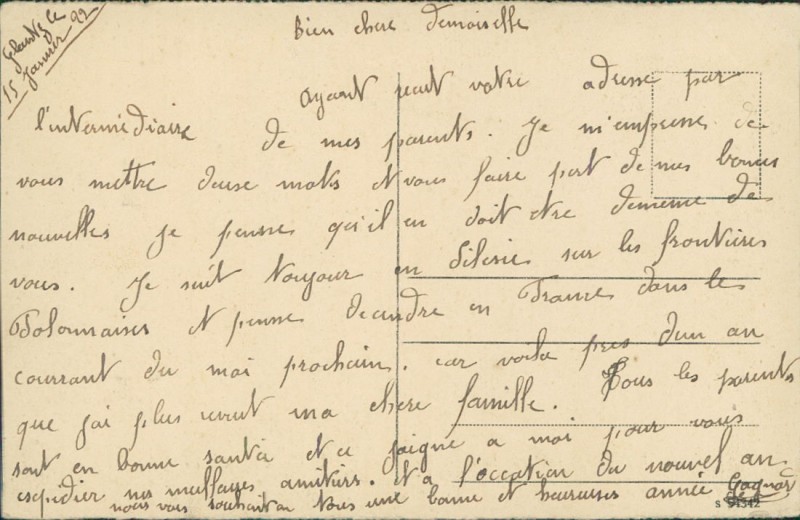 Gleiwitz le
15 Janvier 22
Bien chere demoiselle
Ayant reçut votre adresse par
l'intermédiaire de mes parents. Je m'empresse de
vous mettre deuse mots et vous faire part de mes bonnes
nouvelles je pense qu'il en doit etre de meme de
vous. Je suit toujour en Silesie sur les frontières
Polonnaises et pense decendre en France dans le
courrant du moi prochain. car voila pres d'un an
que j'ai plus revut ma chere famille. Tous les parents
sont en bonne santée et ce joigne a moi pour vous
espedier nos meilleures amitiers. et a l'occation du nouvel an
nous vous souhaiton tous une bonne et heureuses année
S 54342